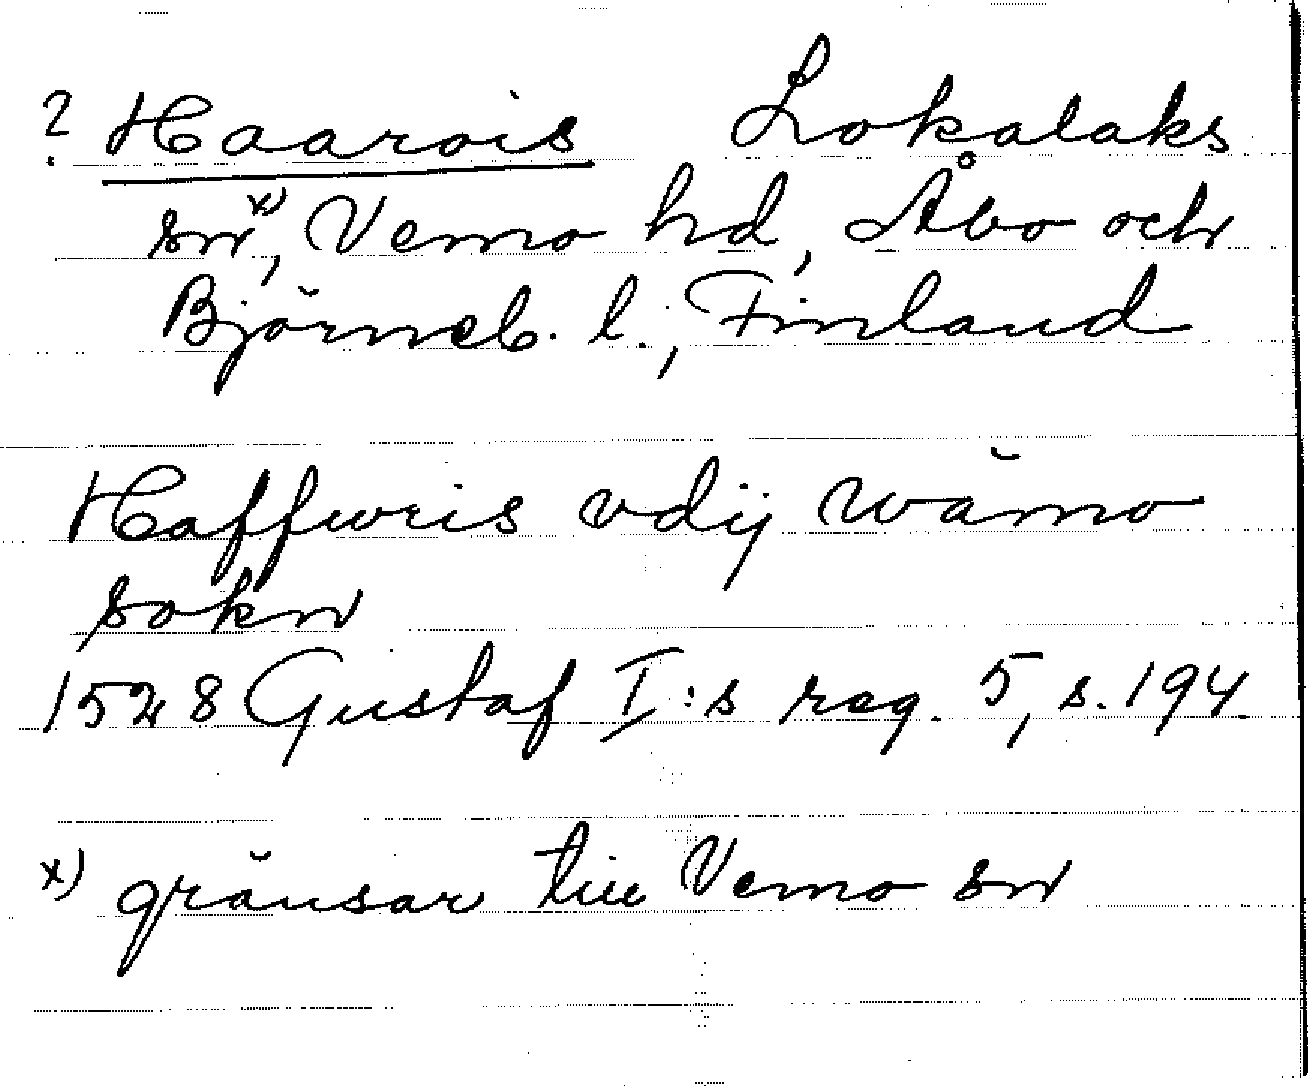 ? Haarois Lokalaks
sn x), Vemo hd, Åbo och
Björneb. l., Finland
Haffwris vdij wämo
sokn
1528 Gustaf I:s reg. 5, s. 194.
x) gränsar till Vemo sn